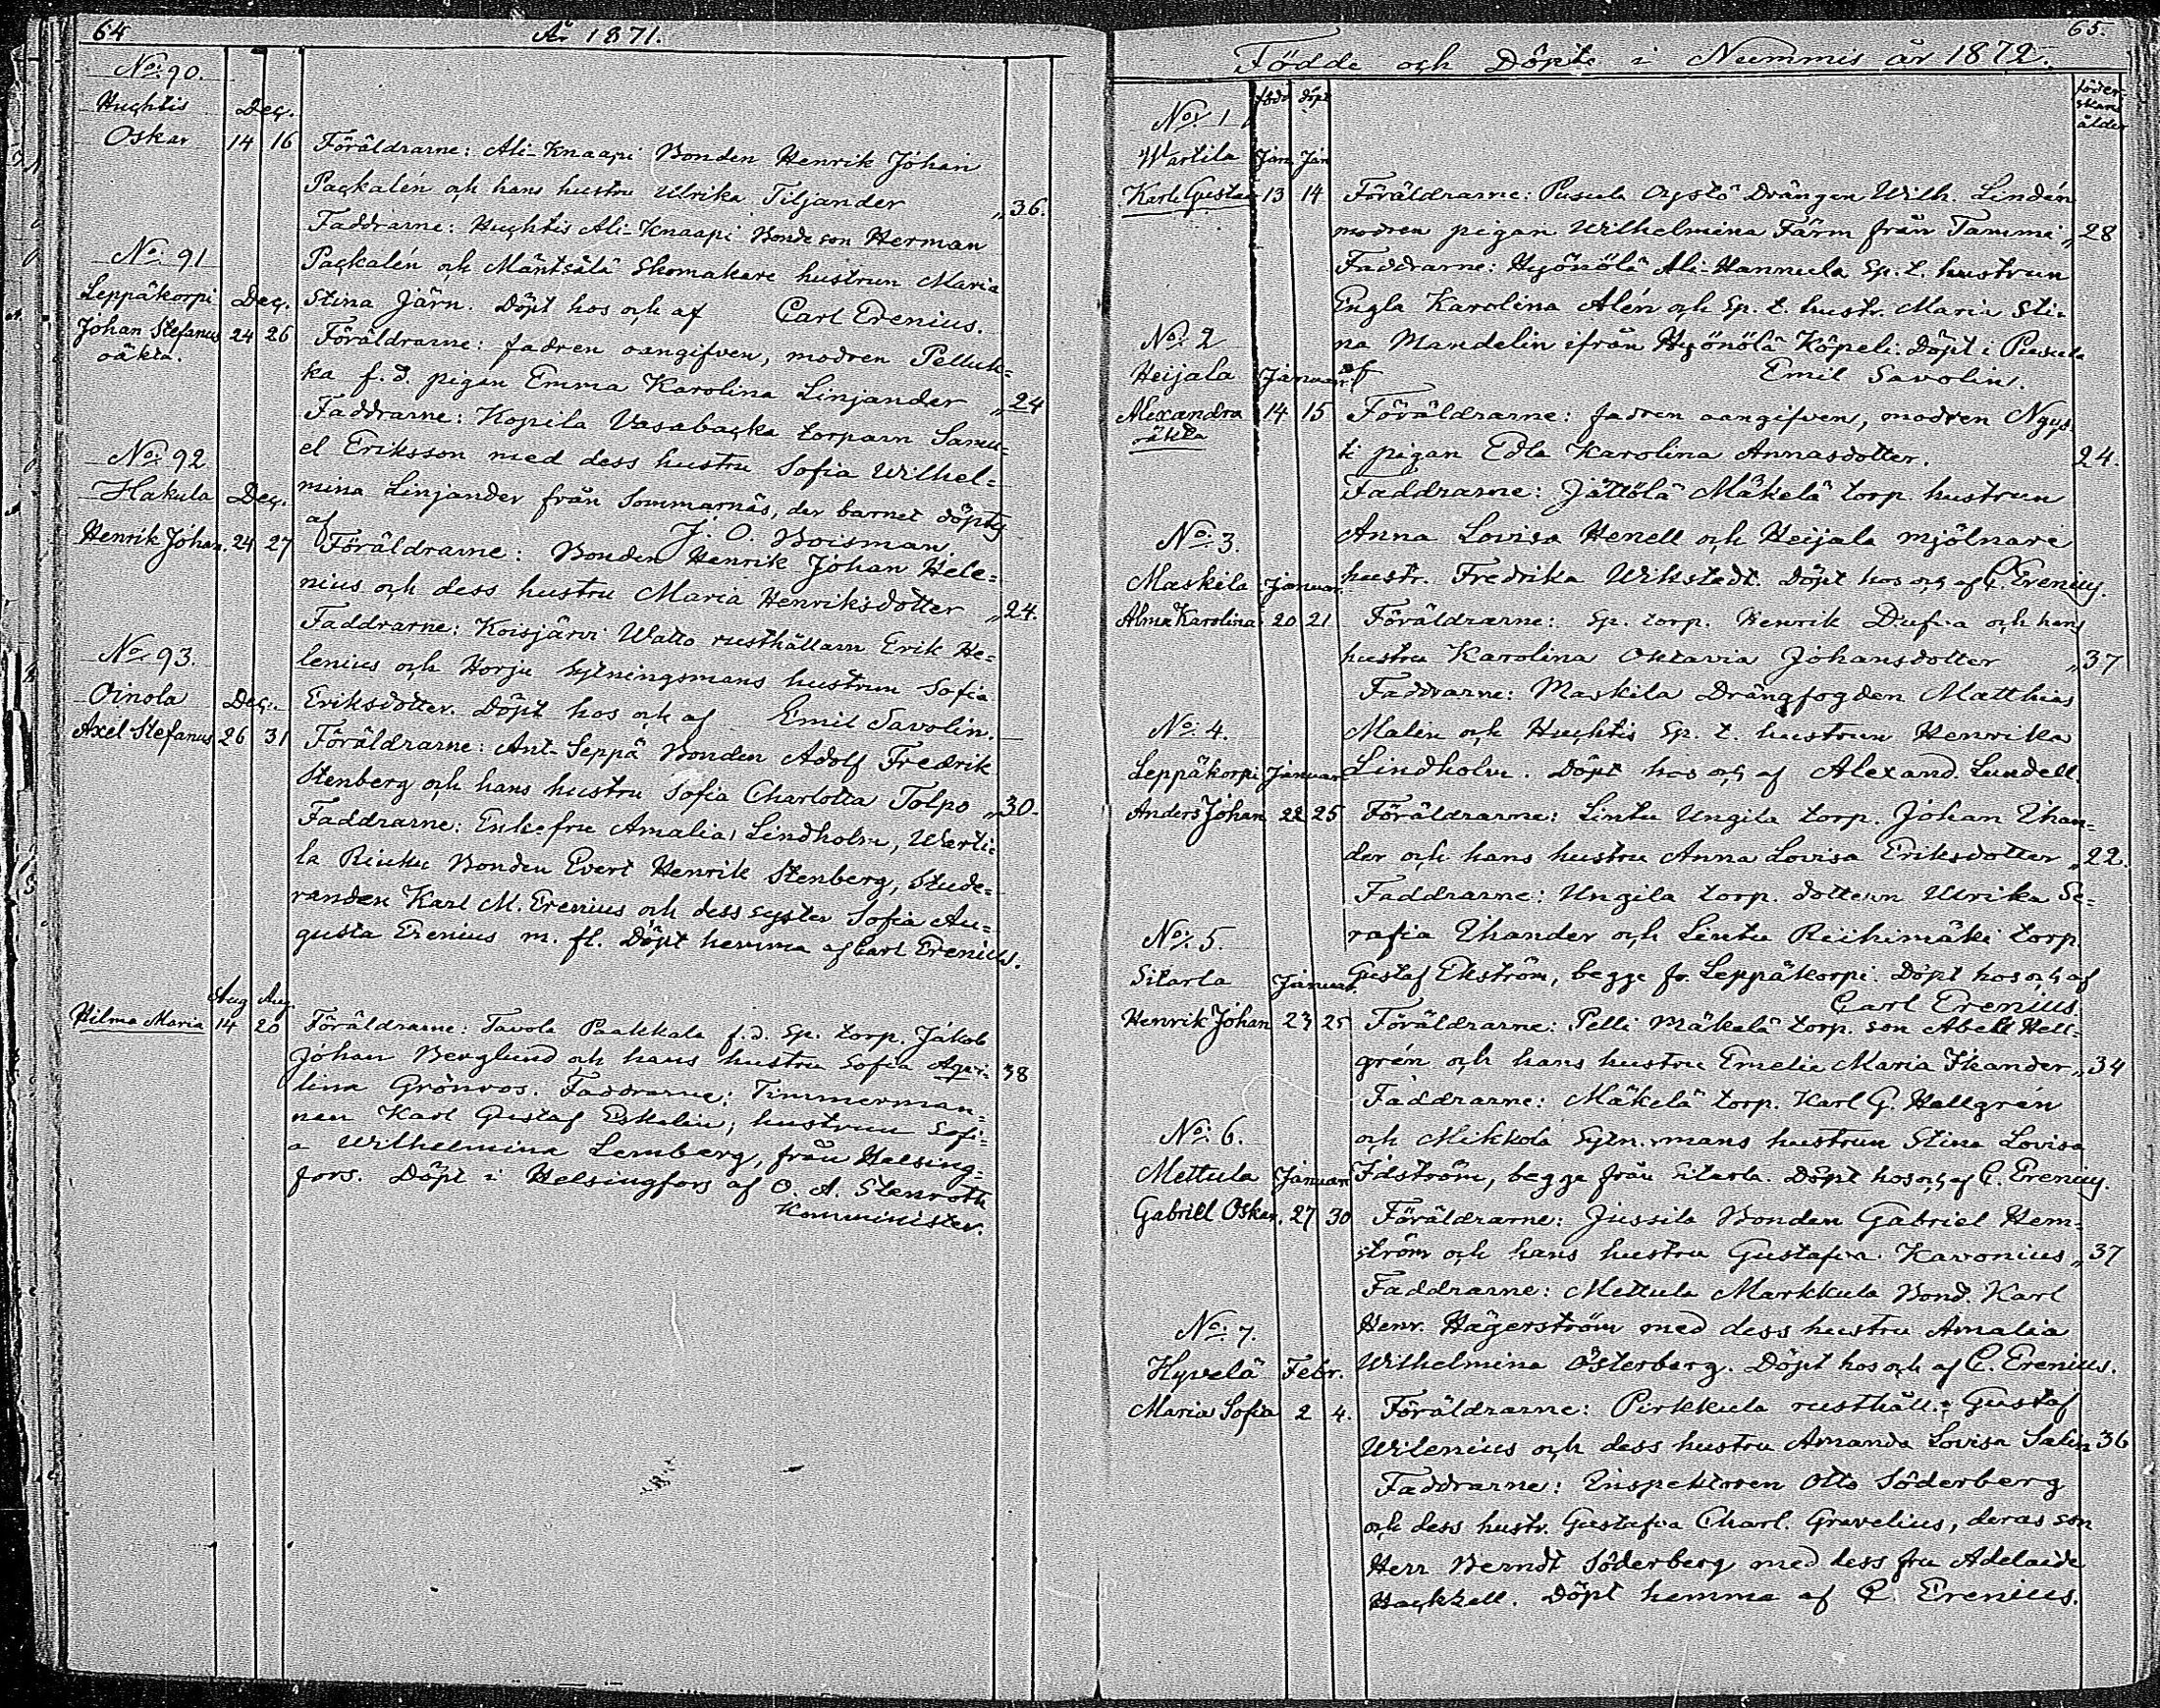 64
År 1871.
No: 90.
Huhtis Dec.
Oskar 14 16 Föräldrarne: Ali-Knaapi Bonden Henrik Johan
Packalén och hans hustru Ulrika Tiljander „36.
Faddrarne: Huhtis Ali-Knaapi Bondeson Herman
Packalén och Mäntsälä Skomakare hustrun Maria
Stina Järn. Döpt hos och af Carl Erenius.
No: 91
Leppäkorpi Dec.
Johan Stefanus 24 26 Föräldrarne: fadren oangifven, modren Pelluk=
oäkta.
ka f. d. pigan Emma Karolina Linjander „24
Faddrarne: Kopila Vasabacka torparn Samu=
el Eriksson med dess hustru Sofia Wilhel=
mina Linjander från Sommarnäs, der barnet döpts
af J. O. Boisman.
No: 92
Hakula Dec.
Henrik Johan. 24 27 Föräldrarne: Bonden Henrik Johan Hele=
nius och dess hustru Maria Henriksdotter „24.
Faddrarne: Koisjärvi Watto rusthållarn Erik He=
lenius och Horju Sytningsmans hustrun Sofia
Eriksdotter. Döpt hos och af Emil Savolin.
No: 93.
Oinola Dec.
Axel Stefanus 26 31 Föräldrarne: Ant-Seppä Bonden Adolf Fredrik
Stenberg och hans hustru Sofia Charlotta Tolpo „30.
Faddrarne: Enkefru Amalia Lindholm, Warti=
la Rinku Bonden Evert Henrik Stenberg, Stude=
randen Karl M. Erenius och dess syster Sofia Au=
gusta Erenius m. fl. Döpt hemma af Carl Erenius.
Aug Aug.
Hilma Maria 14 20 Föräldrarne: Tavola Paakkala f. d. Sp. torp. Jakob
Johan Berglund och hans hustru Sofia Aqvi= 38
lina Grönroos. Faddrarne: Timmerman=
nen Karl Gustaf Eskelin; hustrun Sofi=
a Wilhelmina Lemberg, från Helsing=
fors. Döpt i Helsingfors af O. A. Stenroth
Komminister.
65.
Födde och Döpte i Nummis år 1872.
född döpt föder-
skans
ålder
No: 1
Wartila Jan Jan
Karl Gustaf 13 14 Föräldrarne: Pusula Drängen Wilh. Lindén
modren pigan Wilhelmina Färm från Tammi „28
Faddrarne: Hyönölä Ali-Hannula Sp. t. hustrun
Engla Karolina Alén och Sp. t. hustr. Maria Sti=
na Mandelin ifrån Hyönölä Köpeli. Döpt i Pusula
af Emil Savolin.
No: 2
Heijala Januari
Alexandra 14 15 Föräldrarne: fadren oangifven, modren Nyys
oäkta
ti pigan Edla Karolina Annasdotter. 24.
Faddrarne: Jättölä Mäkelä torp. hustrun
Anna Lovisa Henell och Heijala mjölnare
hustr. Fredrika Wikstedt. Döpt hos och af C. Erenius.
No: 3.
Maskila Januari
Alma Karolina 20 21 Föräldrarne: Sp. torp. Henrik Dufva och hans
hustru Karolina Oktavia Johansdotter „37
Faddrarne: Maskila Drängfogden Matthias
Malin och Huhtis Sp. t. hustrun Henrika
Lindholm. Döpt hos och af Alexand. Lundell.
No: 4.
Leppäkorpi Januari
Anders Johan 22 25 Föräldrarne: Lintu Ungila torp. Johan Ihan=
der och hans hustru Anna Lovisa Eriksdotter „22.
Faddrarne: Ungila torp. dottern Ulrika Se=
rafia Ihander och Lintu Riihimäki torp.
Gustaf Ekström, begge fr. Leppäkorpi. Döpt hos och af
Carl Erenius.
No: 5.
Sitarla Januari
Henrik Johan 23 25 Föräldrarne: Pelli Mäkelä torp. son Abell Hell=
grén och hans hustru Emelie Maria Ikander „34
Faddrarne: Mäkelä torp. Karl G. Hellgrén
och Mikkola Sytn.mans hustrun Stina Lovisa
Idström, begge från Sitarla. Döpt hos och af C. Erenius.
No: 6.
Mettula Januari
Gabriel Oskar. 27 30 Föräldrarne: Jussila Bonden Gabriel Hem=
ström och hans hustru Gustafva Kavonius „37
Faddrarne: Mettula Markkula Bond. Karl
Henr. Hägerström med dess hustru Amalia
Wilhelmina Österberg. Döpt hos och af C. Erenius.
No: 7.
Hyvelä Febr.
Maria Sofia 2 4. Föräldrarne: Pirkkula rusthåll. Gustaf
Wilenius och dess hustru Amanda Lovisa Salin 36
Faddrarne: Inspektoren Otto Söderberg
och dess hustr. Gustafva Charl. Gravelius, deras son
Herr Berndt Söderberg med dess fru Adelaide
Hackzell. Döpt hemma af C. Erenius.